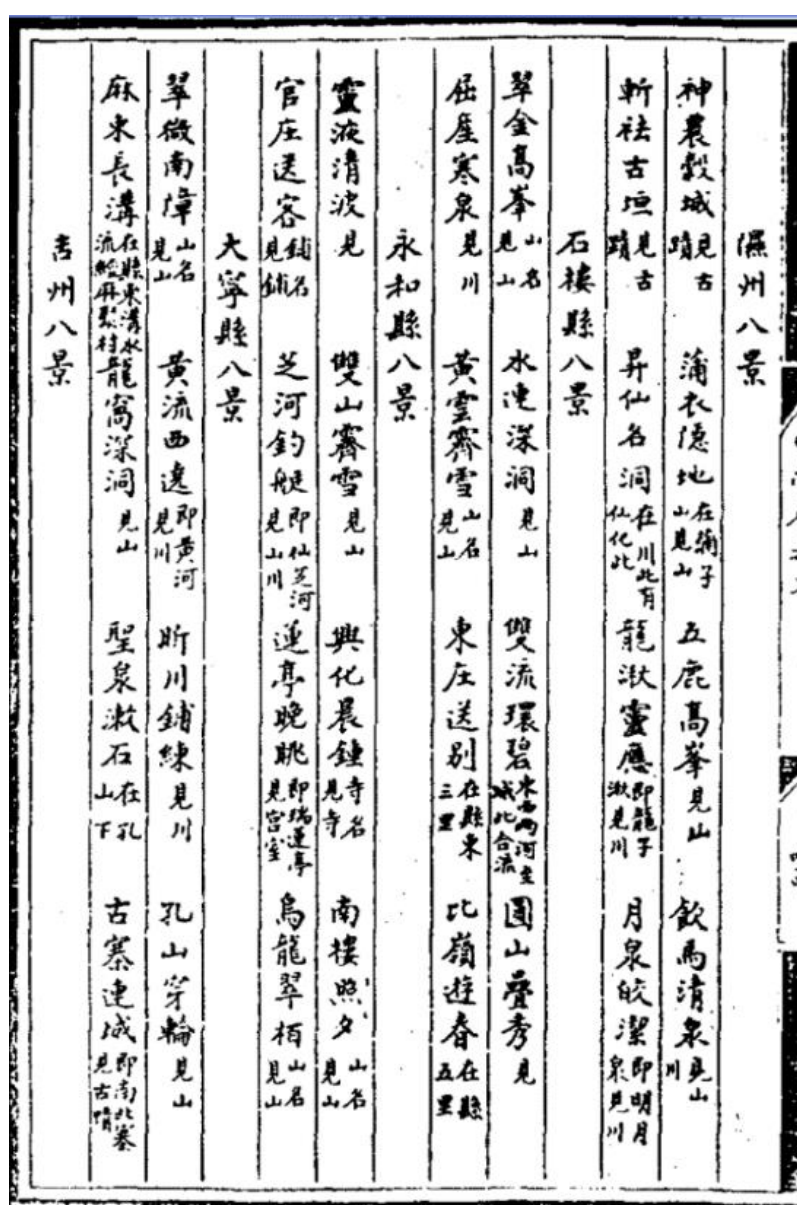 隰州八景
神農穀城見古蹟 蒲衣隱地在蒲子山見山 五鹿高峯見山 飲馬清泉見山川
斬祛古垣見古蹟 昇仙名洞在川北有仙化此 龍湫靈應即龍子湫見川 月泉皎潔即明月泉見川
石樓縣八景
翠金高峯山名見山 水連深洞見山 雙流環碧東西兩河至城北合流 團山疊秀見
屈產寒泉見川 黃雲霽雪山名見山 東庄送別在縣東三里 北嶺遊春在縣五里
永和縣八景
靈液清波見 雙山霽雪見山 興化晨鐘寺名見寺 南樓照夕山名見山
官庄送客鋪名見鋪 芝河釣艇即仙芝河見山川 蓮亭晚眺即瑞蓮亭見宮室 烏龍翠栢山名見山
大寧縣八景
翠微南嶂山名見山 黃流西遶即黃河見川 昕川鋪練見川 孔山穿輪見山
麻束長溝在縣東溝水流經麻束村 龍窩深洞見山 聖泉漱石在孔山下 古寨連城即南北寨見古蹟
吉州八景